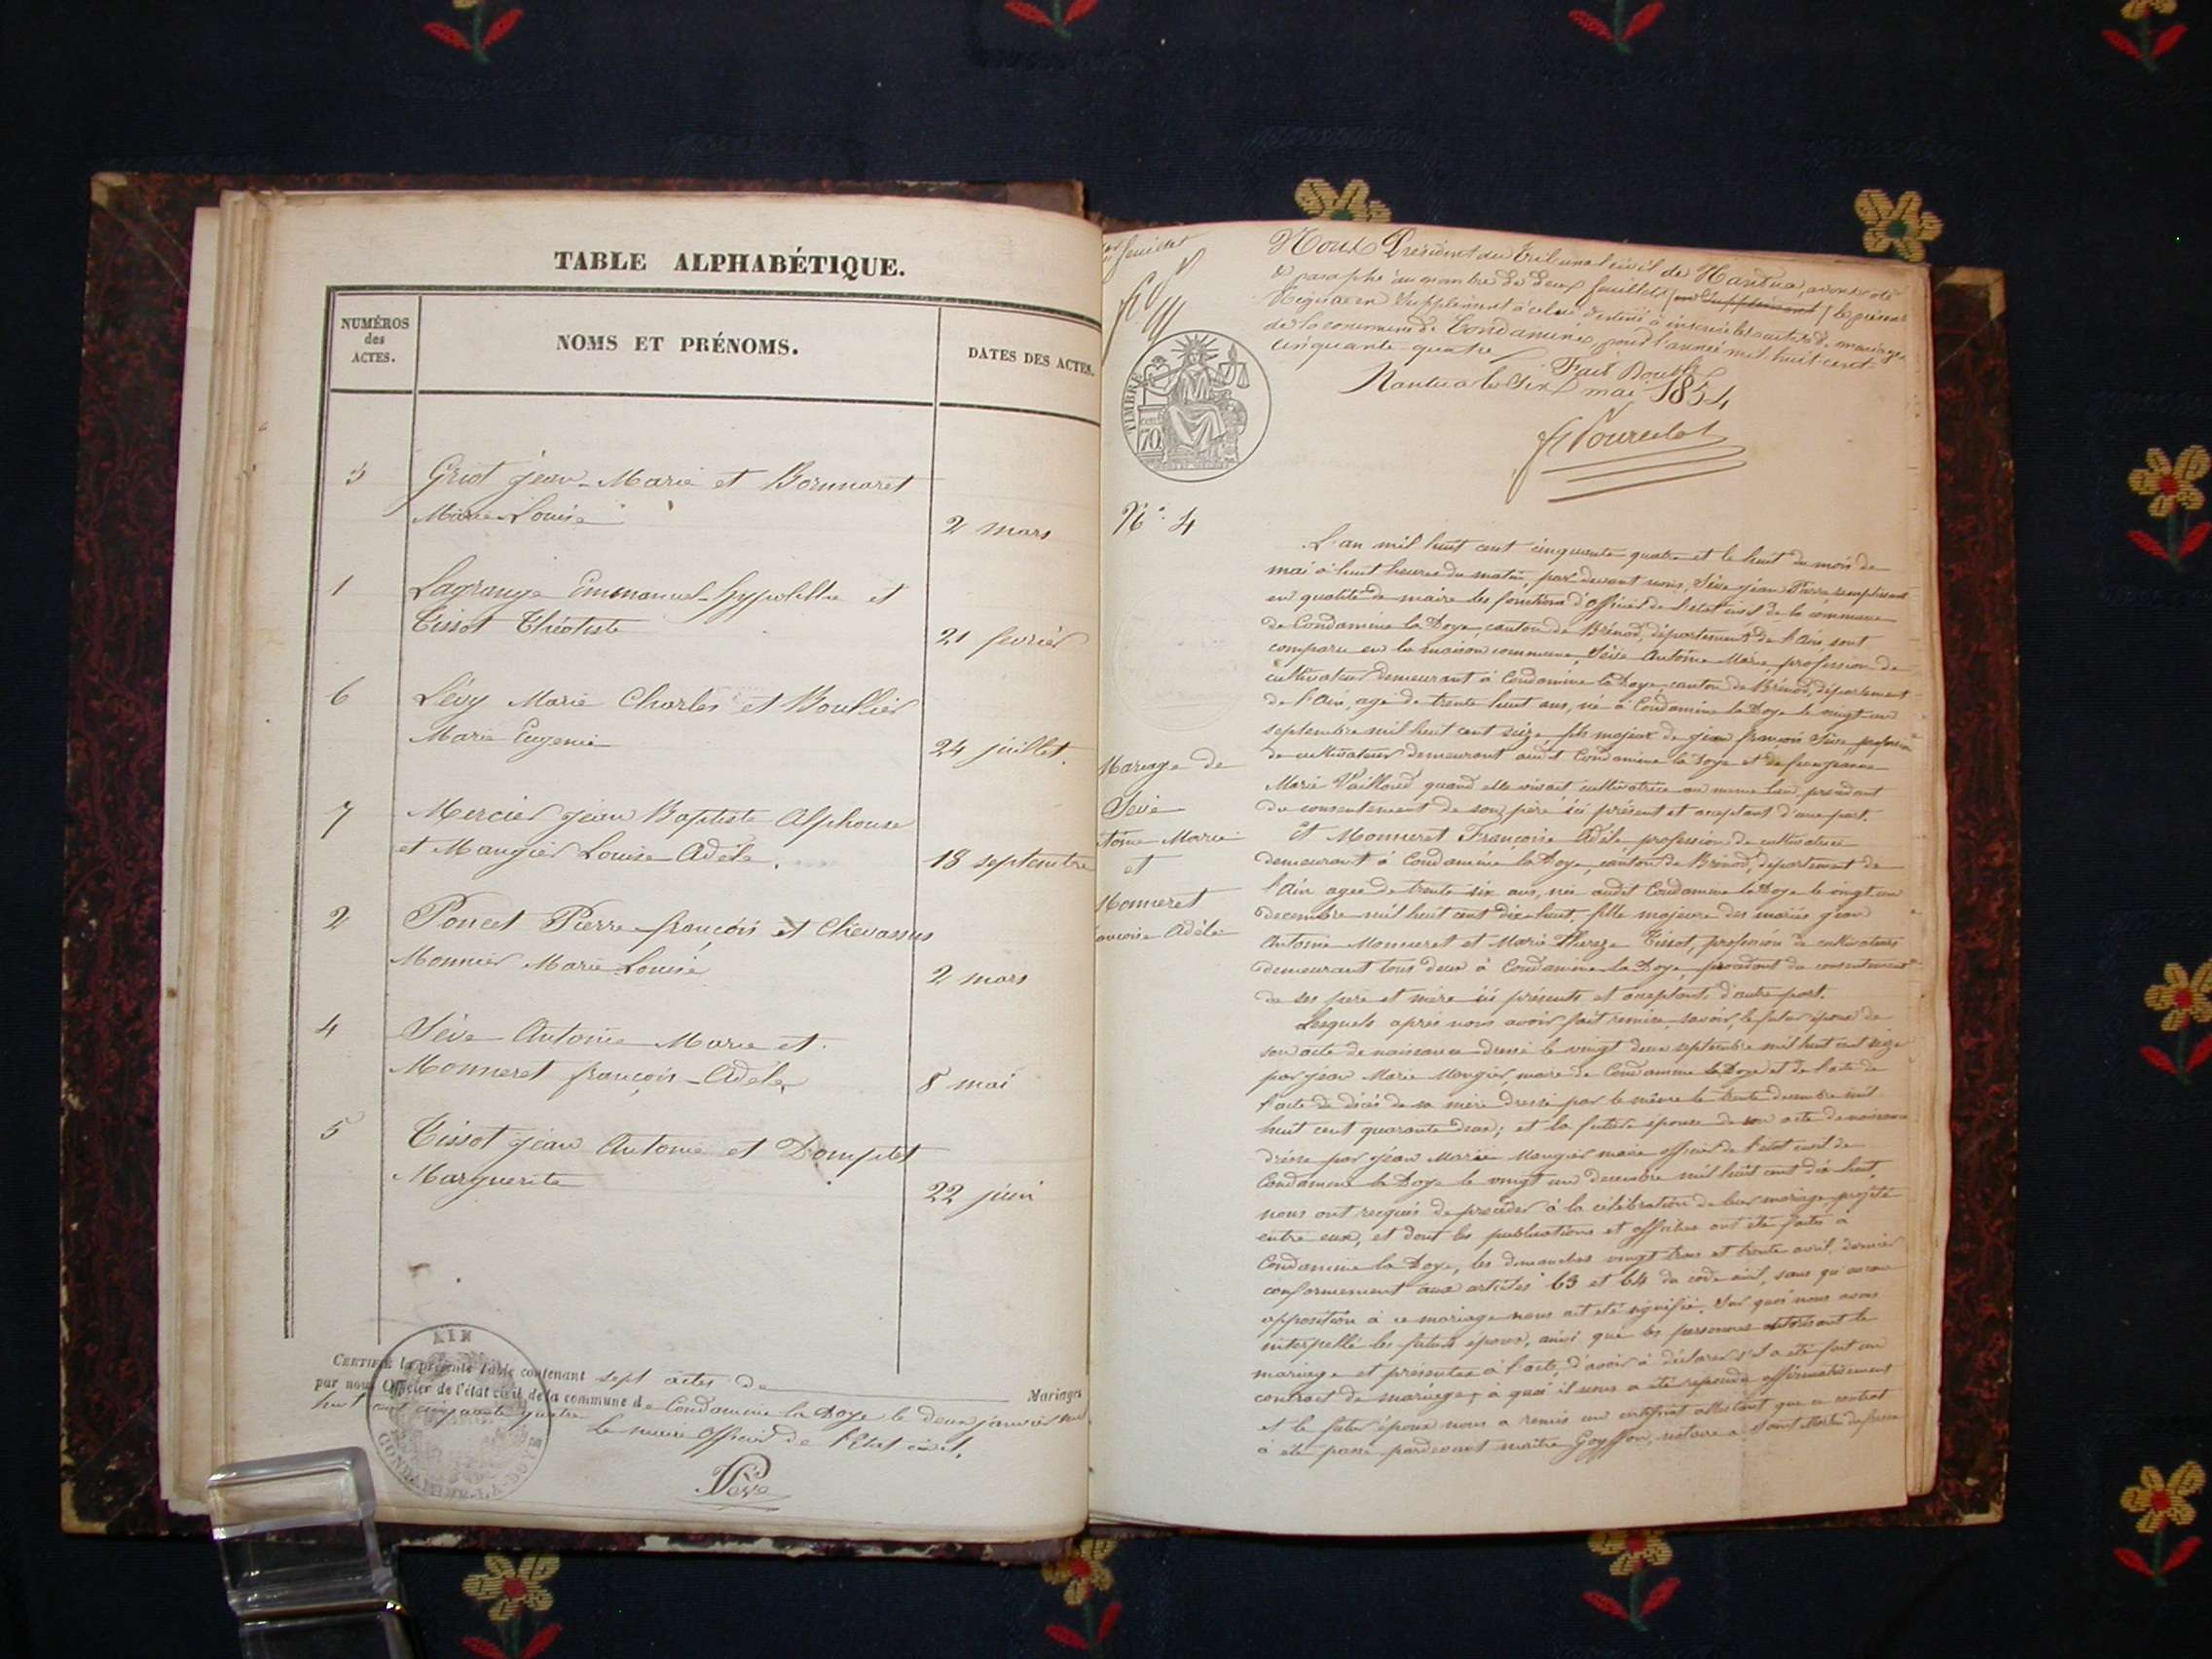 TABLE ALPHABÉTIQUE.
NUMÉROS
des
ACTES.
NOMS ET PRÉNOMS.
DATES DES ACTES.
3 Griot jean-Marie et
Marie Louise 2 mars
1 Lagrange Emmanuel-hyppolitte et
Tissot Théotiste 21 fevrier
6 Lévy Marie Charles et Boullier
Marie Eugenie 24 juillet.
7 Mercier jean Baptiste Alphonse
et Maugier Louise Adèle. 18 septembre
2 Poncet Pierre françois et Chevassus
Monnier Marie Louise 2 mars
4 Sève Antoine Marie et
Monneret françois-Adèle 8 mai
5 Tissot jean Antoine et Dompitet
Marguerite 22 juin
CERTIFIÉ la présente Table contenant sept actes de Mariages
par nous Officier de l'état civil de la commune de Condamine la Doye le deux janvier mil
huit cent cinquante quatre
le maire officier de l'Etat civil.
Sève
AIN
CONDAMINE-LA-DOYE
feuillet
Nous Président du Tribunal civil de Nantua, avons coté
& paraphé au nombre de deux feuillets (en supplément) le présent
Registre en supplément à celui destiné à inscrire les actes de mariages
de la commune de Condamine, pour l'année mil huit cent
cinquante quatre Fait Double
Nantua le six mai 1854
TIMBRE
70
N° 4
Mariage de
Sève
toine Marie
et
Monneret
ançoise Adèle
L'an mil huit cent cinquante quatre et le huit du mois de
mai à huit heures du matin, par devant nous, Sève jean Pierre remplissant
en qualité de maire les fonctions d'officier de l'état civil de la commune
de Condamine la Doye, canton de Brénod, département de l'Ain, sont
comparu en la maison commune, Sève Antoine Marie, profession de
cultivateur demeurant à Condamine la Doye, canton de Brénod, département
de l'Ain, agé de trente huit ans, né à Condamine la Doye le vingt un
septembre mil huit cent seize, fils majeur de jean françois Sève profession
de cultivateur demeurant audit Condamine la Doye et de
Marie Vailloud quand elle vivait cultivatrice au meme lieu, procédant
du consentement de son père ici présent et acceptant d'une part.
Et Monneret Françoise Adèle profession de cultivatrice
demeurant à Condamine la Doye, canton de Brénod, département de
l'Ain agée de trente six ans, née audit Condamine la Doye le vingt un
decembre mil huit cent dix huit, fille majeure des mariés jean
Antoine Monneret et Marie Thereze Tissot, profession de cultivateurs
demeurant tous deux à Condamine la Doye, procédant du consentement
de ses père et mère ici présents et acceptants d'autre part.
Lesquels après nous avoir fait remise, savoir, le futur époux de
son acte de naissance dressé le vingt deux septembre mil huit cent seize
par jean Marie Maugier, maire de Condamine la Doye et de l'acte de
l'acte de décès de sa mère dressé par le même le trente decembre mil
huit cent quarante deux; et la future épouse de son acte de naissance
dressé par jean Marie Maugier maire officier de l'état civil de
Condamine la Doye le vingt un decembre mil huit cent dix huit,
nous ont requis de procéder à la célébration de leur mariage projété
entre eux, et dont les publications et affiches ont été faites à
Condamine la Doye, les dimanches vingt trois et trente avril dernier
conformement aux articles 63 et 64 du code civil, sans qu'aucune
opposition à ce mariage nous ait été signifié. Sur quoi nous avons
interpellé les futurs époux, ainsi que les personnes autorisant le
mariage et présentes à l'acte, d'avoir à déclarer s'il a été fait un
contrat de mariage, a quoi il nous a été repondu affirmativement
et le futur époux nous a remis un certificat attestant que ce contrat
à été passé pardevant maître Goyffon, notaire a Saint Martin du fresne